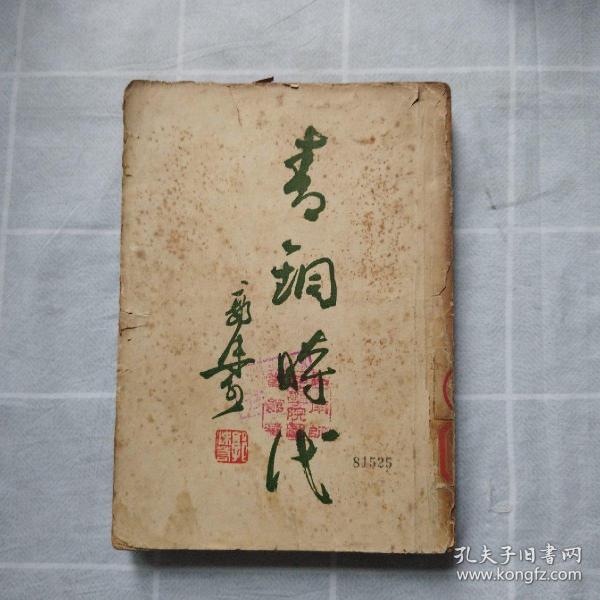 青铜時代
郭沫若
81525
孔夫子旧書网
www.kongfz.com